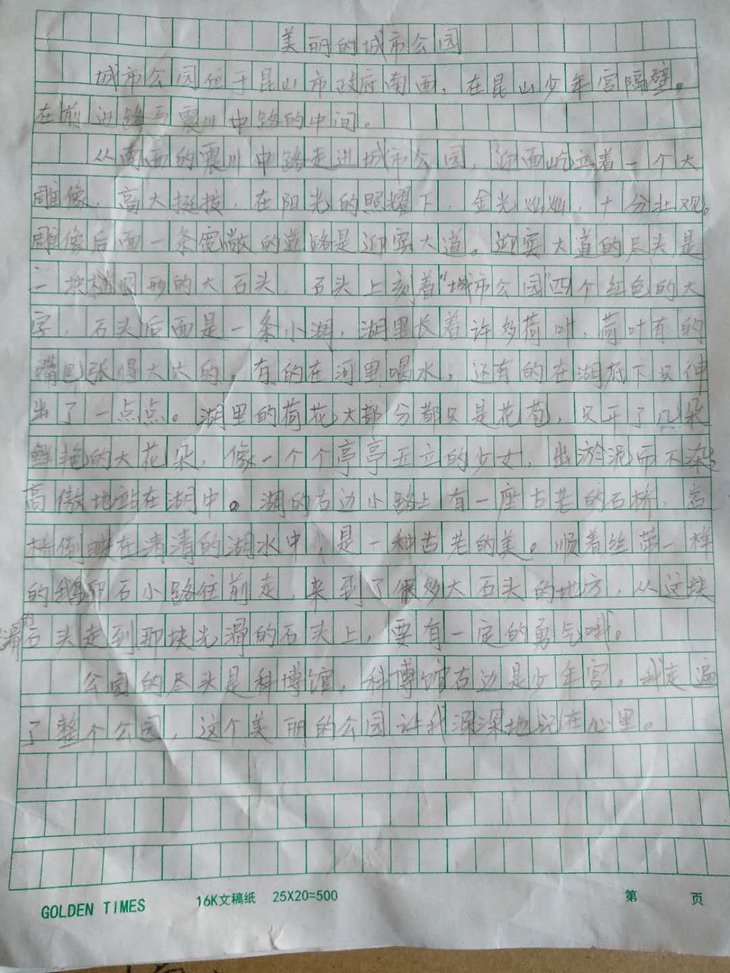 美丽的城市公园
城市公园位于昆山市政府南面，在昆山少年宫隔壁。
在前进路与震川中路的中间。
从南面的震川中路走进城市公园，迎面屹立着一个大
雕像，高大挺拔，在阳光的照耀下，金光灿灿，十分壮观。
雕像后面一条宽敞的道路是迎宾大道。迎宾大道的尽头是
一块椭圆形的大石头，石头上刻着“城市公园”四个红色的大
字，石头后面是一条小湖，湖里长着许多荷叶，荷叶有的
嘴巴张得大大的，有的在河里喝水，还有的在湖底下只伸
出了一点点。湖里的荷花大部分都只是花苞，只开了几朵
鲜艳的大花朵，像一个个亭亭玉立的少女，出淤泥而不染，
高傲地站在湖中。湖的右边小路上有一座古老的石桥，石
桥倒映在清清的湖水中，是一种古老的美。顺着丝带一样
的鹅卵石小路往前走，来到了很多大石头的地方，从这块
石头走到那块光滑的石头上，要有一定的勇气哦。
公园的尽头是科博馆，科博馆右边是少年宫。我走遍
了整个公园，这个美丽的公园让我深深地记在心里。
GOLDEN TIMES 16K文稿纸 25X20=500 第 页